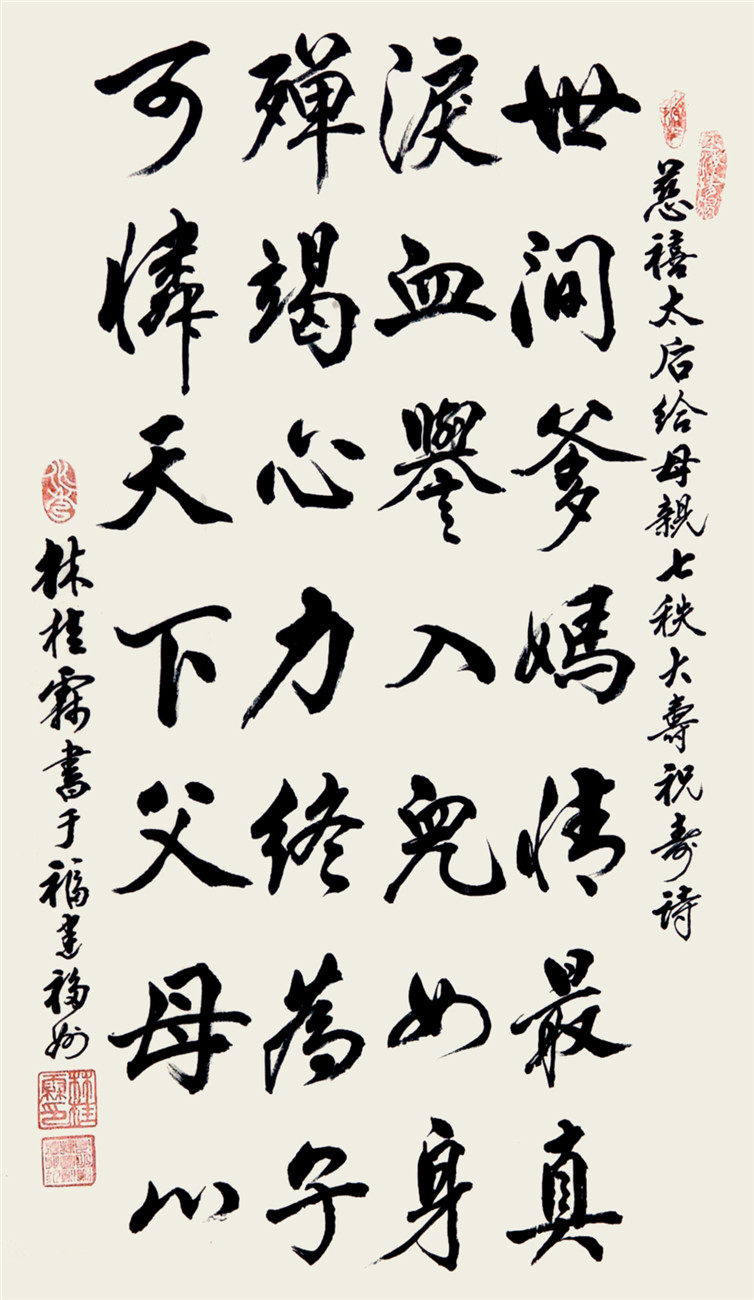 慈禧太后给母親七秩大壽祝寿诗
世間爹媽情最真
淚血譽入兒女身
殫竭心力終為子
可憐天下父母心
林桂霖書于福建福州
林桂霖印